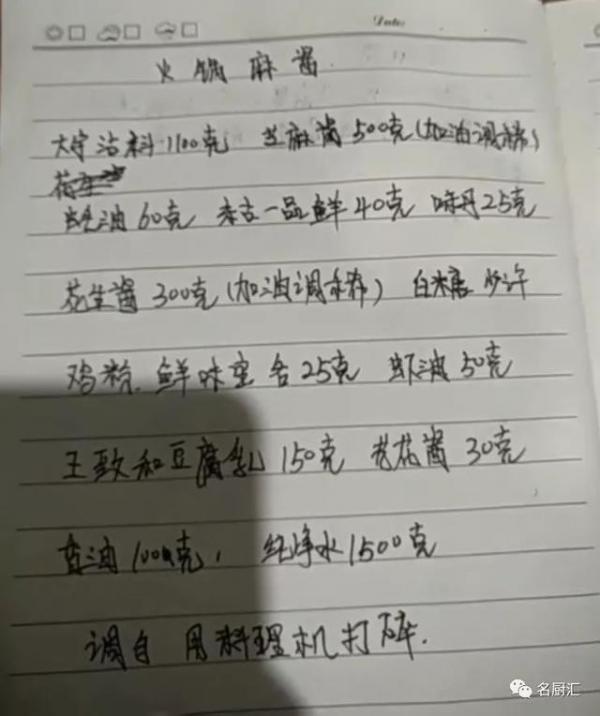 Date:
火锅麻酱
大宇沾料1100克 芝麻酱500克(加油调稀)
蚝油60克 李古一品鲜40克 味丹25克
花生酱300克(加油调稀) 白米唐少许
鸡粉、鲜味宝 各25克 虾油50克
王致和豆腐乳150克 韭花酱30克
香油100克, 纯净水1500克
调匀 用料理机打碎.
名厨汇